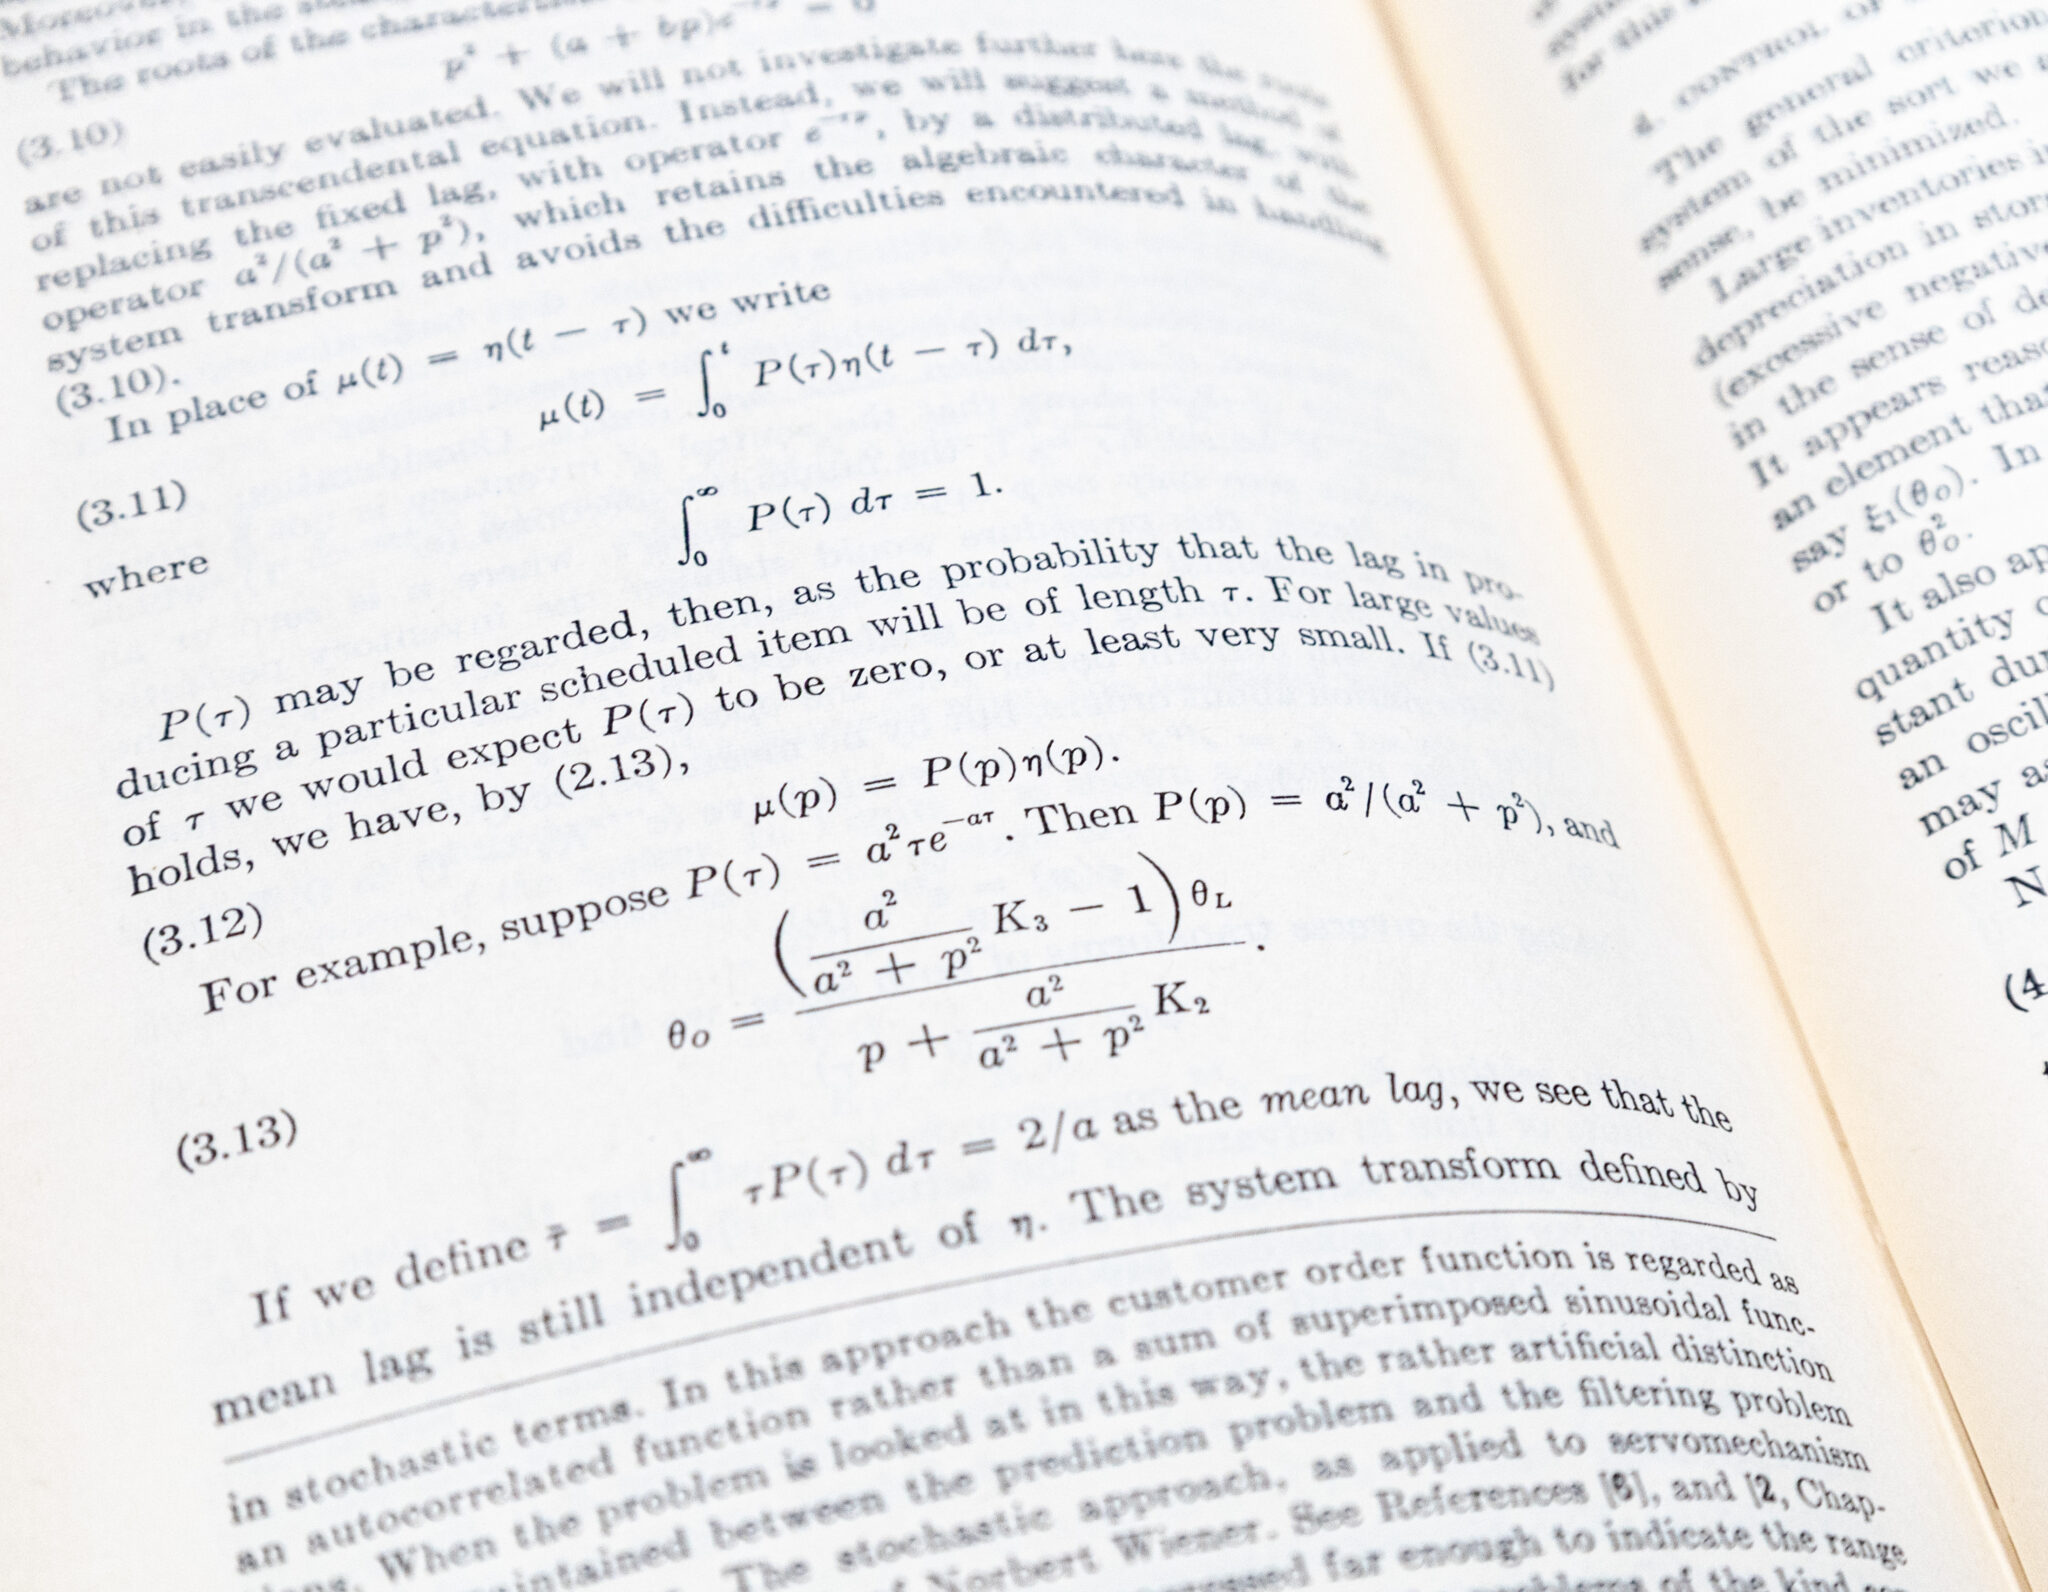 behavior in the
The roots of the
p² + (a + bp)e
(3.10)
are not easily evaluated. We will not investigate further here the roots
of this transcendental equation. Instead, we will suggest a method of
replacing the fixed lag, with operator e^{-τp}, by a distributed lag, with
operator a²/(a² + p²), which retains the algebraic character of the
system transform and avoids the difficulties encountered in handling
(3.10).
In place of μ(t) = η(t − τ) we write
(3.11) μ(t) = ∫₀ᵗ P(τ)η(t − τ) dτ,
where
∫₀^∞ P(τ) dτ = 1.
P(τ) may be regarded, then, as the probability that the lag in pro-
ducing a particular scheduled item will be of length τ. For large values
of τ we would expect P(τ) to be zero, or at least very small. If (3.11)
holds, we have, by (2.13),
(3.12) μ(p) = P(p)η(p).
For example, suppose P(τ) = a²τe^{−aτ}. Then P(p) = a²/(a² + p²), and
(3.13) θ_O = ((a²/(a² + p²)) K₃ − 1)θ_L / (p + (a²/(a² + p²)) K₂).
If we define τ̄ = ∫₀^∞ τP(τ) dτ = 2/a as the mean lag, we see that the
mean lag is still independent of η. The system transform defined by
in stochastic terms. In this approach the customer order function is regarded as
an autocorrelated function rather than a sum of superimposed sinusoidal func-
When the problem is looked at in this way, the rather artificial distinction
between the prediction problem and the filtering problem
The stochastic approach, as applied to servomechanism
Norbert Wiener. See References [6], and [2, Chap-
far enough to indicate the range
of the kind
4. CONTROL
The general criterion
system of the sort we
sense, be minimized.
Large inventories
depreciation in
(excessive negative
in the sense of
It appears
an element
say ξ₁(θ_O). In
or to θ_O².
It also
quantity
stant
an
may
of M
(4